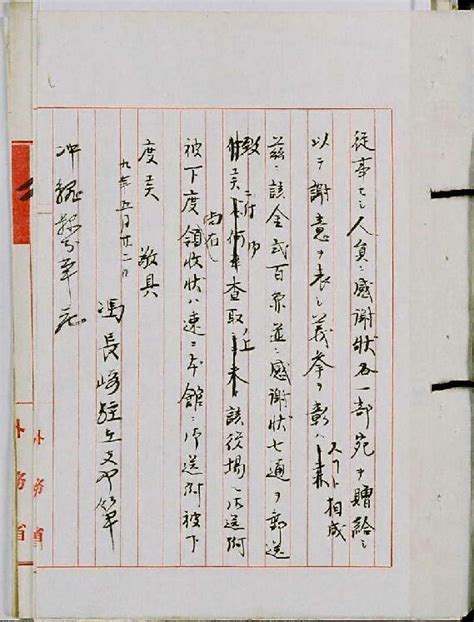 從事セシ人員ニ感謝状各一部宛ヲ贈給シ
以テ謝意ヲ表シ義挙ヲ彰ハ
スコト相成
茲ニ該金弐百 並ニ感謝状七通ヲ郵送
致 ニ付 何 査収 該役場ニ御送附
被下度領收状ハ速ニ本館ニ御送附被下
度 敬具
九年五月廿二日
馮長崎駐
沖縄 宛
外務省